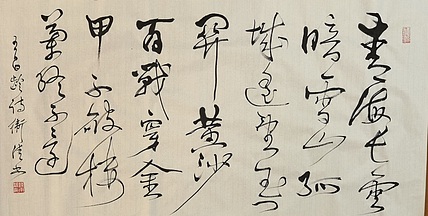 青海长雲
暗雪山孤
城遥望玉
门关黄沙
百戰穿金
甲不破楼
蘭终不還
王昌龄诗